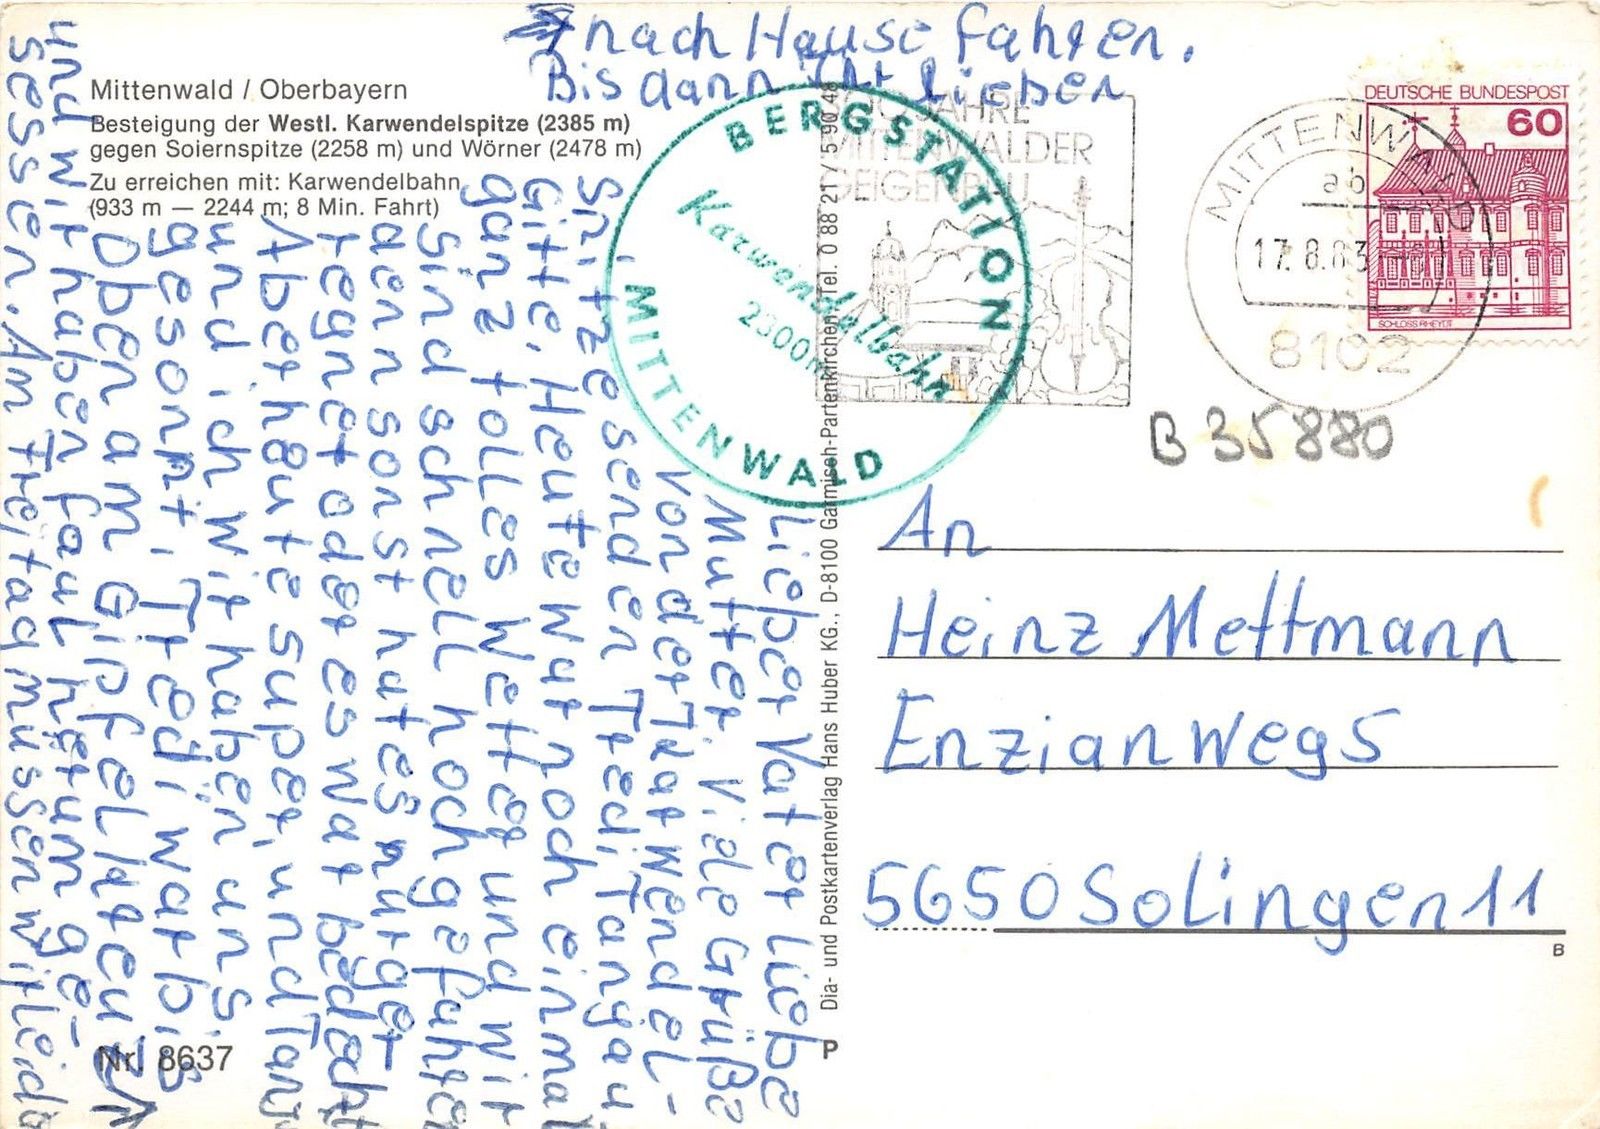 Mittenwald / Oberbayern
Besteigung der Westl. Karwendelspitze (2385 m)
gegen Soiernspitze (2258 m) und Wörner (2478 m)
Zu erreichen mit: Karwendelbahn
(933 m — 2244 m; 8 Min. Fahrt)
Lieber Vater Liebe
Mutter. Viele Grüße
von der Karwendel-
Spitze senden Tredi, Tanja u
Gitte. Heute war noch einmal
ganz tolles Wetter und wir
sind schnell hoch gefahren
denn sonst hat es nur ge-
regnet oder es war bedeckt
Aber heute super, und Tanja
und ich wir haben uns
gesonnt, Tredi war bis
Oben am Gipfelkreuz
und wir haben faul herum ge-
sessen. Am Freitag müssen wir leider
nach Hause fahren.
Bis dann Ihr Lieben
BERGSTATION
Karwendelbahn
2300m
MITTENWALD
300 JAHRE
MITTENWALDER
GEIGENBAU
MITTENWALD
ab
17.8.83
8102
DEUTSCHE BUNDESPOST
60
SCHLOSS RHEYDT
B 35880
Dia- und Postkartenverlag Hans Huber KG., D-8100 Garmisch-Partenkirchen, Tel. 0 88 21 / 5 90 48
An
Heinz Mettmann
Enzianweg 5
5650 Solingen 11
B
P
Nr. 8637